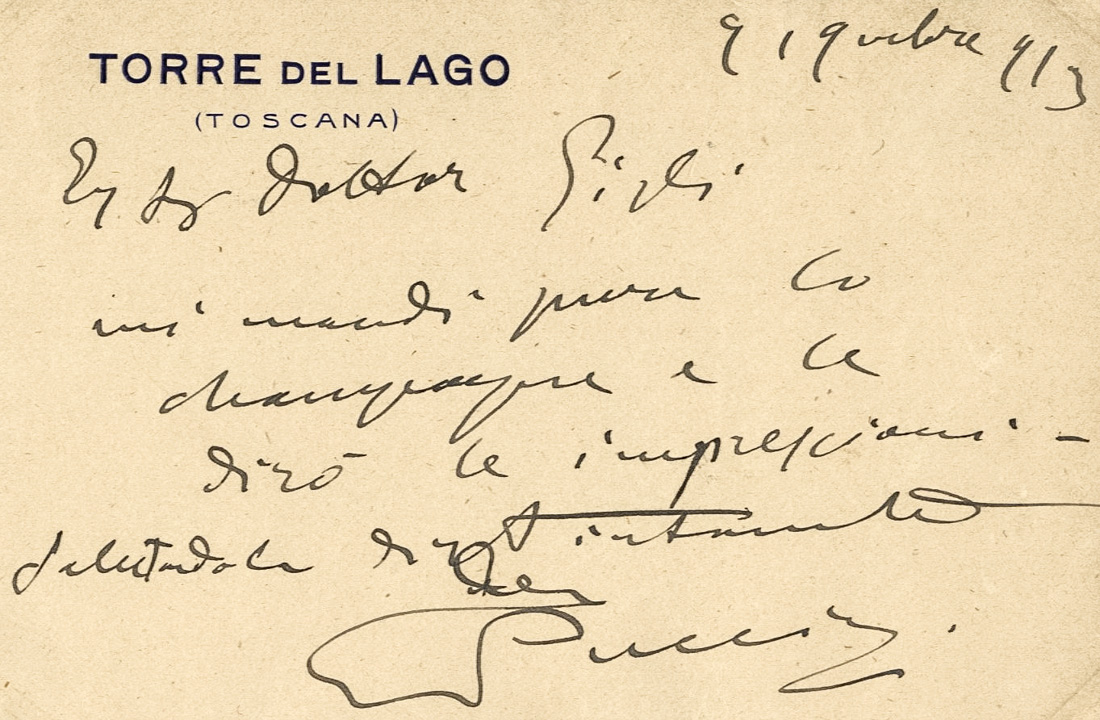 9 19mbre 913
TORRE DEL LAGO
(TOSCANA)
Eg Sr Dottor Gigli
mi mandi pure lo
champagne e le
dirò le impressioni -
salutandola distintamente
Puccini